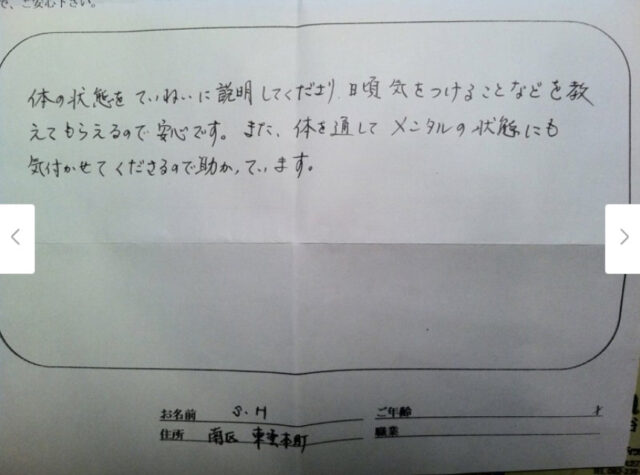 で、ご安心下さい。
体の状態をていねいに説明してくださり、日頃気をつけることなどを教
えてもらえるので安心です。また、体を通してメンタルの状態にも
気付かせてくださるので助かっています。
お名前 S.H ご年齢 才
住所 南区 東雲本町 職業